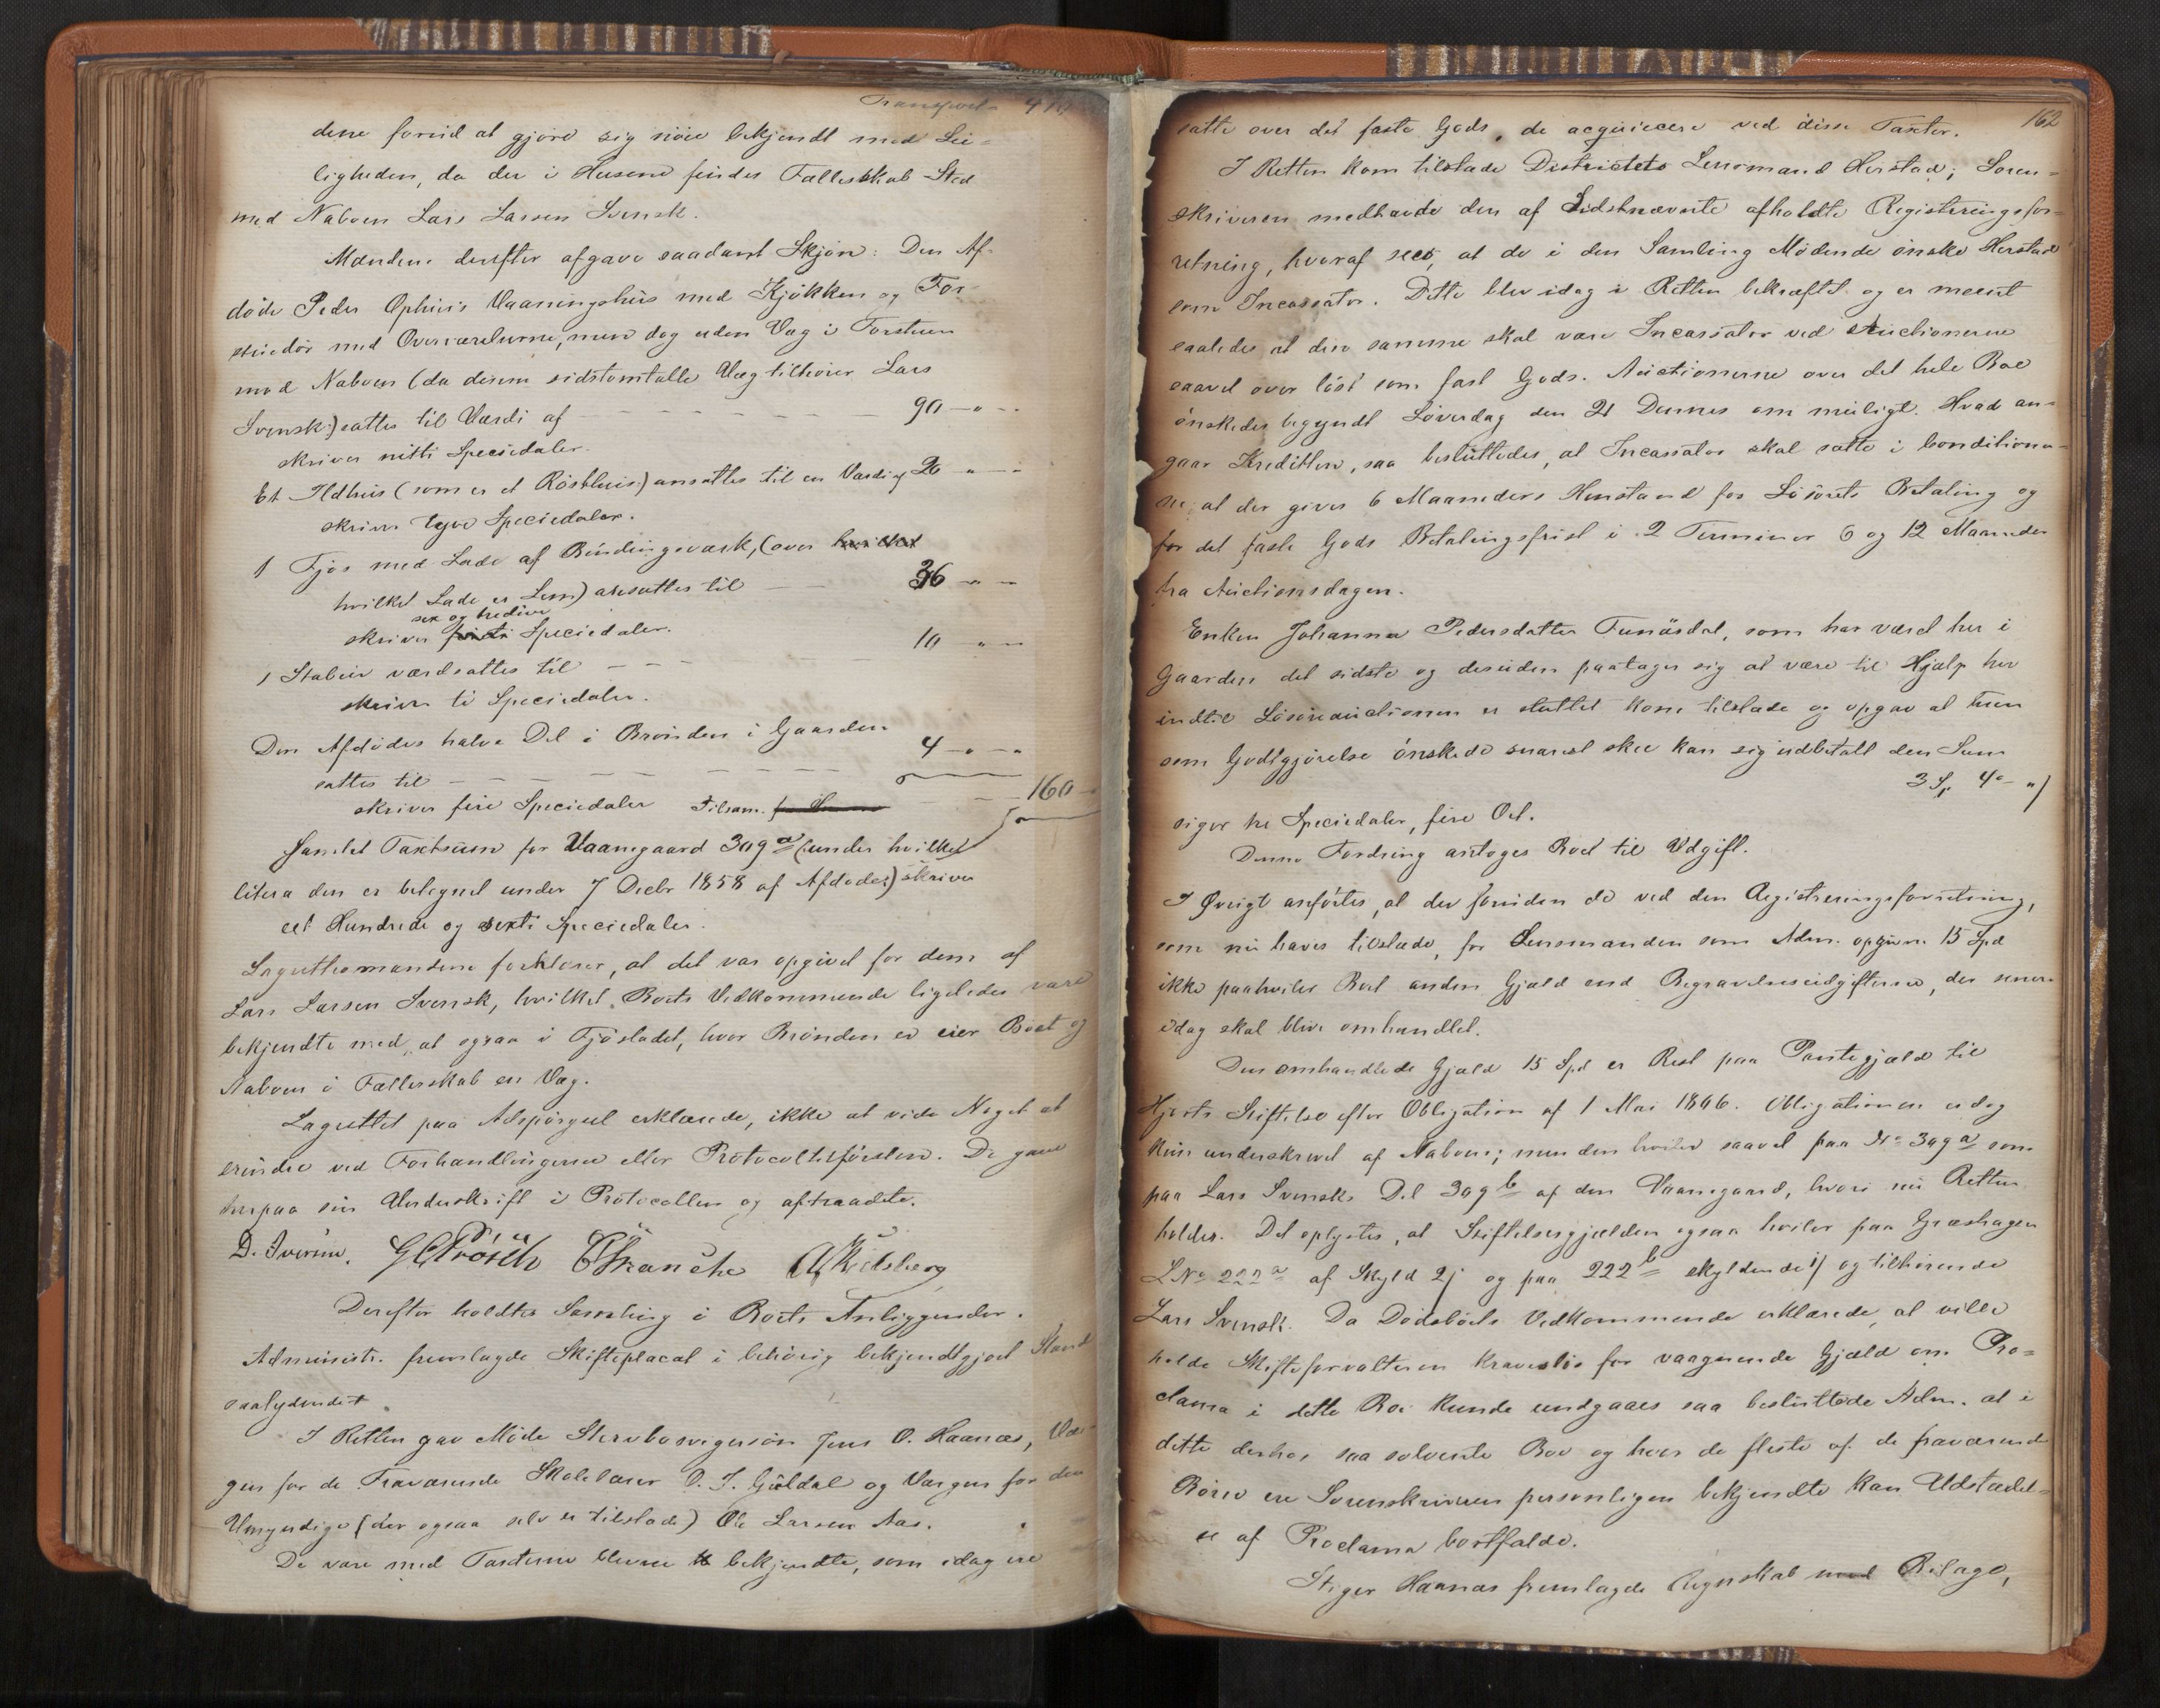 Transport 410
dene forud at gjøre sig nöie bekjendt med Lei=
ligheden, da der i Husene findes Fælleskab Sted
med Naboen Lars Larsen Svensk.
Mændene derefter afgave saadant Skjön: Den Af-
döde Peder Ophuis Vaaningshus med Kjökken og For-
stuedör med Overværelserne, men dog uden Væg i Forstuen
mod Naboen (da denne sidstomtalte Væg tilhører Lars
Svensk:) sattes til Værdi af – – – – – 90 – " –
skriver nitti Speciedaler.
Et Ildhus (som er et Röstehus:) ansattes til en Værdi af 20 – " –
skriver tyve Speciedaler.
1 Fjös med Lade af Bindingsværk, (over hvilket
hvilket Lade er Lem) ansattes til – 36 – " –
sex og tredive
skriver Speciedaler.
1 Stabur værdsattes til – – – 10 " –
skriver ti Speciedaler.
Den Afdödes halve Del i Brönden i Gaarden
sattes til – – – – – 4 – " –
skriver fire Speciedaler Tilsam. – 160 –
Samlet Taxtsum for Vaanegaard 309 a (under hvilket
litera den er betegnet under 7 Decbr 1858 af Afdöde:) skriver
eet Hundrede og sexti Speciedaler.
Lagrettesmændene forklarer, at det var opgivet for dem af
Lars Larsen Svensk, hvilket Boets Vedkommende ligeledes vare
bekjendte med, at ogsaa i Fjösladet, hvor Brönden er eier Boet og
Naboen i Fællesskab en Væg.
Lagrettet paa Adspörgsel erklærede, ikke at vide Noget at
erindre ved Forhandlingerne eller Protocoltilförslen. De gave
herpaa sin Underskrift i Protocollen og aftraadte.
D. Iversen.
Derefter holdtes Samling i Boets Anliggender.
Administr. fremlagde Skifteplacat i behörig bekjendtgjort Stand
saalydende
I Retten gav Möde Stervbosvigersön Jens O. Haanæs, Vær-
gen for de Fraværende Skolelærer O. J. Guldal og Værgen for den
Umyndige (der ogsaa selv er tilstede) Ole Larsen Aas.
De vare med Taxterne blevne bekjendte, som idag ere
162
satte over det faste Gods, de acqviecere ved disse Taxter.
I Retten kom tilstede Districtets Lensmand Herstad; Soren-
skriveren medhavde den af Sidstnævnte afholdte Registreringsfor-
retning, hvoraf sees, at de i den Samling Mödende önske Herstad
som Incassator. Dette blev idag i Retten bekræftet og er meent
saaledes at den samme skal være Incassator ved Auctionerne
saavel over löst som fast Gods. Auctionerne over det hele Boe
önskedes begyndt Löverdag den 21 Dennes om muligt. Hvad an-
gaar Kreditten, saa besluttedes, at Incassator skal sætte i Conditioner-
ne, at der gives 6 Maaneders Henstand for Lösörets Betaling og
for det faste Gods Betalingsfrist i 2 Terminer 6 og 12 Maaneder
fra Auctionsdagen.
Enken Johanna Pedersdatter Funäsdal, som har været her i
Gaarden det sidste og desuden paatager sig at være til Hjælp her
indtil Lösöreauctionen er sluttet kom tilstede og opgav at hun
som Godtgjörelse önskede snarest skee kan sig udbetalt den Sum
3 Sp 4 – "
siger tre Speciedaler, fire Ort.
Denne Fordring antoges Boet til Udgift.
I Övrigt anförtes, at der foruden de ved den Registreringsforretning,
som nu haves tilstede, for Lensmanden som Adm. opgivne 15 Spd
ikke paahviler Boet anden Gjæld end Begravelsesudgifterne, der senere
idag skal blive omhandlet.
Den omhandlede Gjæld 15 Spd er Rest paa Pantegjæld til
Hjorts Stiftelse efter Obligation af 1 Mai 1846. Obligationen er dog
kun underskrevet af Naboen; men den hviler saavel paa No 309 a som
paa Lars Svensks Del 309 b af den Vaanegaard, hvori nu Retten
holdes. Det oplystes, at Stiftelsesgjælden ogsaa hviler paa Græshagen
L No 222 a af Skyld 2 og paa 222 b skyldende og tilhörende
Lars Svensk. Da Dödsboets Vedkommende erklærede, at ville
holde Skifteforvalteren kraveslös for vaagnende Gjæld om Pro=
clama i dette Boe kunde undgaaes saa besluttede Adm. at i
dette derhos saa solvente Boe og hvor de fleste af de fraværende
Börn ere Sorenskriveren personligen bekjendte kan Udstædel-
se af Proclama bortfalde.
Haanæs fremlagde Regnskab med Bilage,